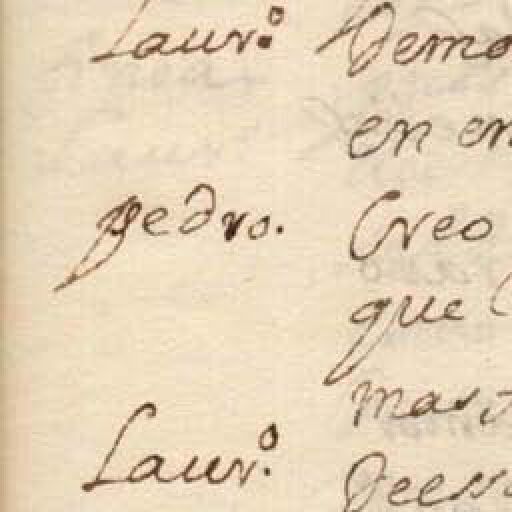 Laur.º Demo
en en
pedro. Creo
que
mas
Laur.º Deess